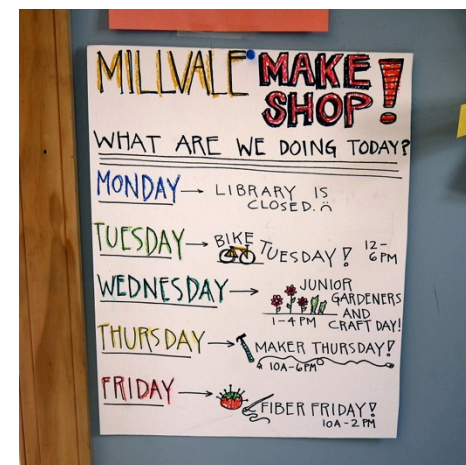 MILLVALE MAKE
SHOP!
WHAT ARE WE DOING TODAY?
MONDAY → LIBRARY IS
CLOSED.
TUESDAY → BIKE TUESDAY! 12-
6PM
WEDNESDAY → JUNIOR
GARDENERS
AND
1-4 PM CRAFT DAY!
THURSDAY → MAKER THURSDAY!
10A-6PM
FRIDAY → FIBER FRIDAY!
10A-2PM